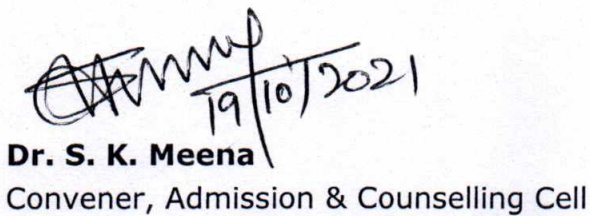 19/10/2021
Dr. S. K. Meena
Convener, Admission & Counselling Cell